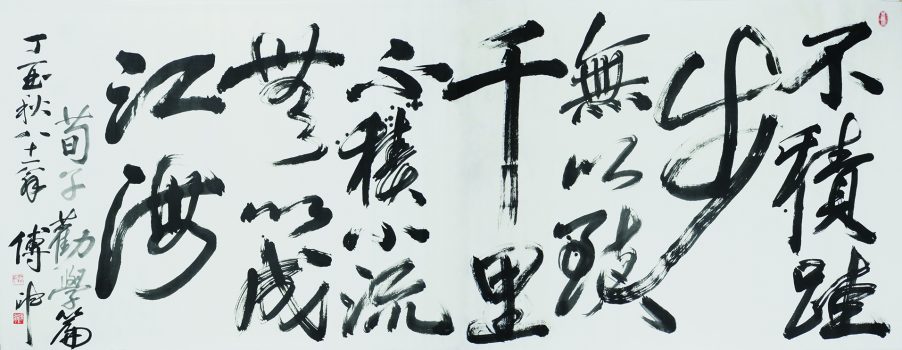 不積跬
步
無以臻
千里
不積小流
無以成
江海
荀子勸學篇
丁酉秋八十翁
傅申